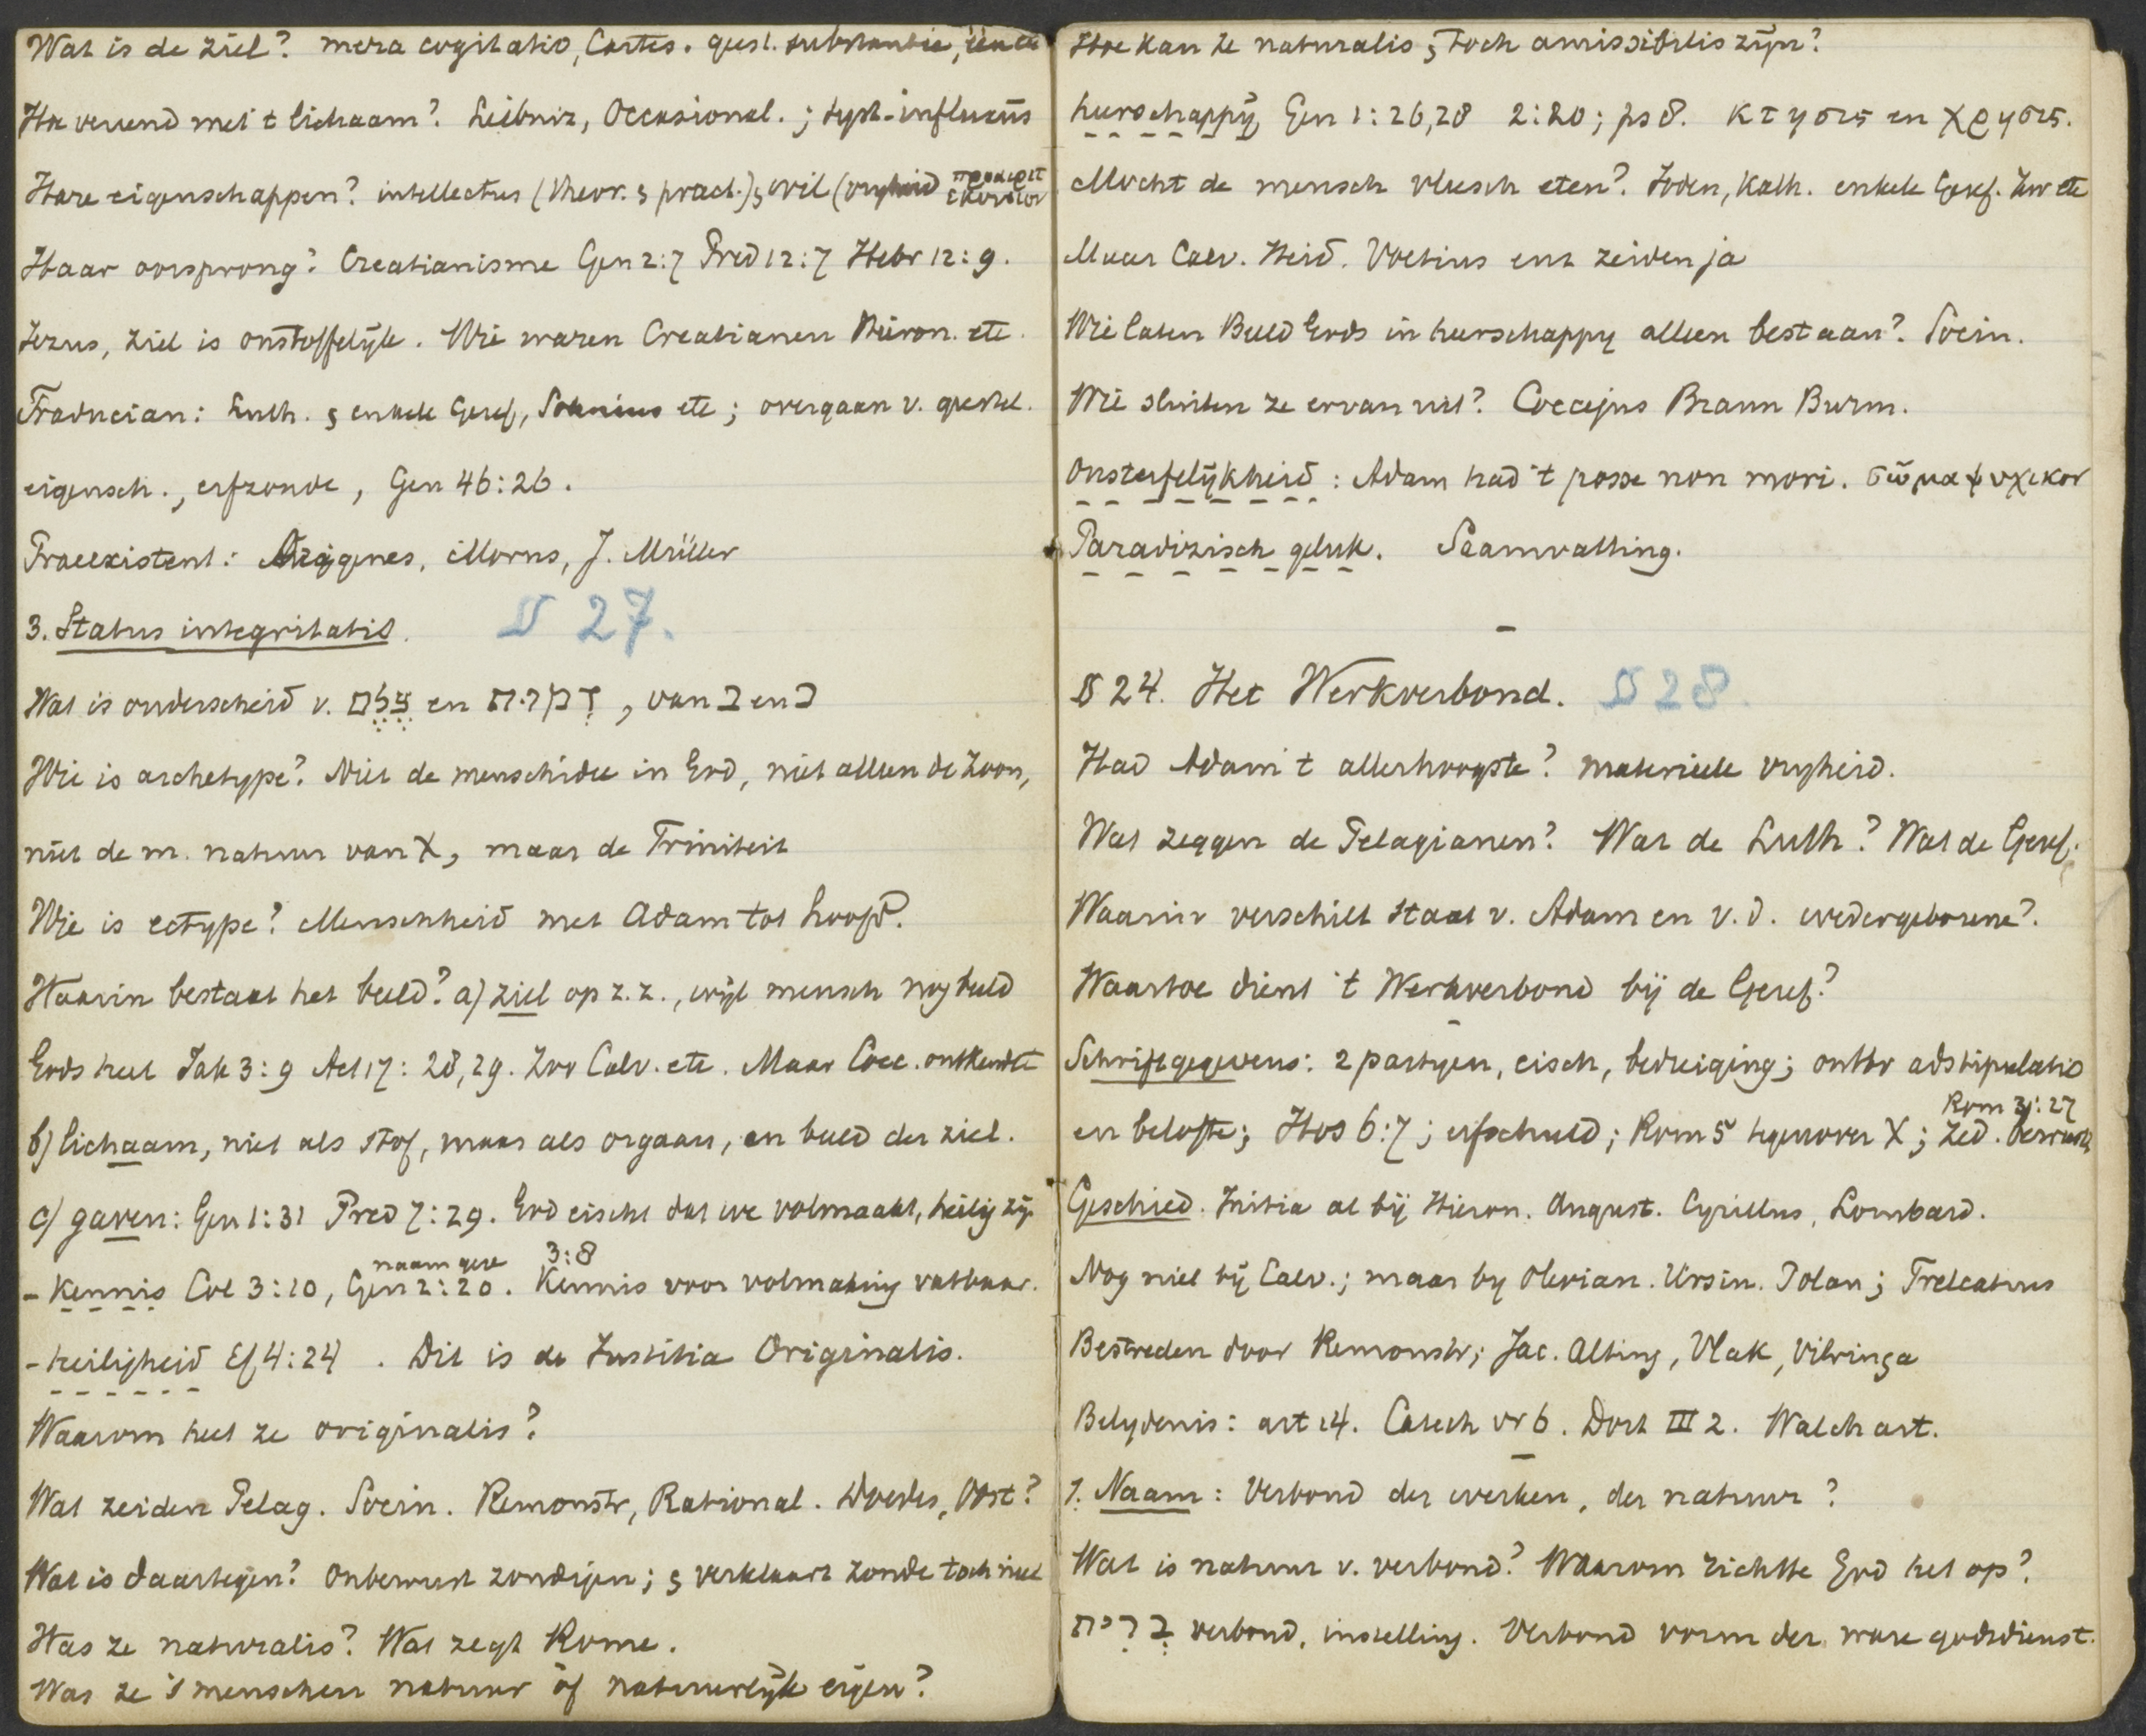 Wat is de ziel? mera cogitatio, Cartes. geest. substantie,
Hoe vereend met 't lichaam? Leibniz, Occasional.; syst. influxus
Hare eigenschappen? intellectus (theor. & pract.) & wil (vryheid
Haar oorsprong? Creatianisme Gen 2:7 Pred 12:7 Hebr 12:9.
Jezus, ziel is onstoffelÿk. Wie waren Creatianen Hieron. etc.
Traducian: Luth. & enkele Geref, Sohnius etc; overgaan v. geestel.
eigensch., erfzonde, Gen 46:26.
Praeexistent: Origenes, Morus, J. Müller
3. Status integritatis. § 27.
Wat is onderscheid v. צלם en דמות, van ב en כ
Wie is archetype? Niet de menschidee in God, niet alleen de Zoon,
niet de m. natuur van X, maar de Triniteit
Wie is ectype? Menschheid met Adam tot hoofd.
Waarin bestaat het beeld? a) ziel op z.z., wÿl mensch nog beeld
Gods heet Jak 3:9 Act 17:28,29. Zoo Calv. etc. Maar Cocc. ontkende
b) lichaam, niet als stof, maar als orgaan, en beeld der ziel.
c) gaven: Gen 1:31 Pred 7:29. God eischt dat we volmaakt, heilig zÿ
naamgeve 3:8
- kennis Col 3:10, Gen 2:20. Kennis voor volmaking vatbaar.
- heiligheid Ef 4:24. Dit is de Justitia Originalis.
Waarom heet ze originalis?
Wat zeiden Pelag. Socin. Remonstr, Rational. Doedes, Oost?
Wat is daartegen? Onbewust zondigen; & verklaart zonde toch niet
Was ze naturalis? Wat zegt Rome.
Was ze 's menschen natuur òf natuurlÿk eigen?
Hoe kan ze naturalis & toch amissibilis zÿn?
heerschappÿ Gen 1:26,28 2:20; ps 8. κτησις en χρησις.
Mocht de mensch vleesch eten? Joden, Kath. enkele Geref. Zoo etc
Maar Calv. Heid. Voetius enz zeiden ja
Wie laten Beeld Gods in heerschappy alleen bestaan? Socin.
Wie sluiten ze ervan uit? Coccejus Braun Burm.
Onsterfelÿkheid: Adam had 't posse non mori. σῶμα ψυχικον
Paradizisch geluk. Saamvatting.
§ 24. Het Werkverbond. § 28.
Had Adam 't allerhoogste? materieele vryheid.
Wat zeggen de Pelagianen? Wat de Luth? Wat de Geref.
Waarin verschilt staat v. Adam en v.d. wedergeborene?
Waartoe dient 't Werkverbond bÿ de Geref?
Schriftgegevens: 2 partyen, eisch, bedreiging; ontbr adstipulatio
Rom 3:27
en belofte; Hos 6:7; erfschuld; Rom 5 tegenover X; Zed.
Geschied. Initia al bÿ Hieron. August. Cyrillus, Lombard.
Nog niet bÿ Calv.; maar by Olevian. Ursin. Polan; Trelcatius
Bestreden door Remonstr; Jac. Alting, Vlak, Vitringa
Belydenis: art 14. Catech vr 6. Dort III 2. Walch art.
1. Naam: Verbond der werken, der natuur?
Wat is natuur v. verbond? Waarom richtte God het op?
ברית verbond, instelling. Verbond vorm der ware godsdienst.